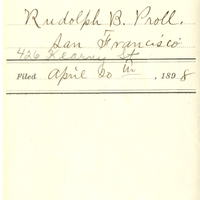 Rudolph B. Proll.
San Francisco
426 Kearny St
Filed April 20 th, 1898